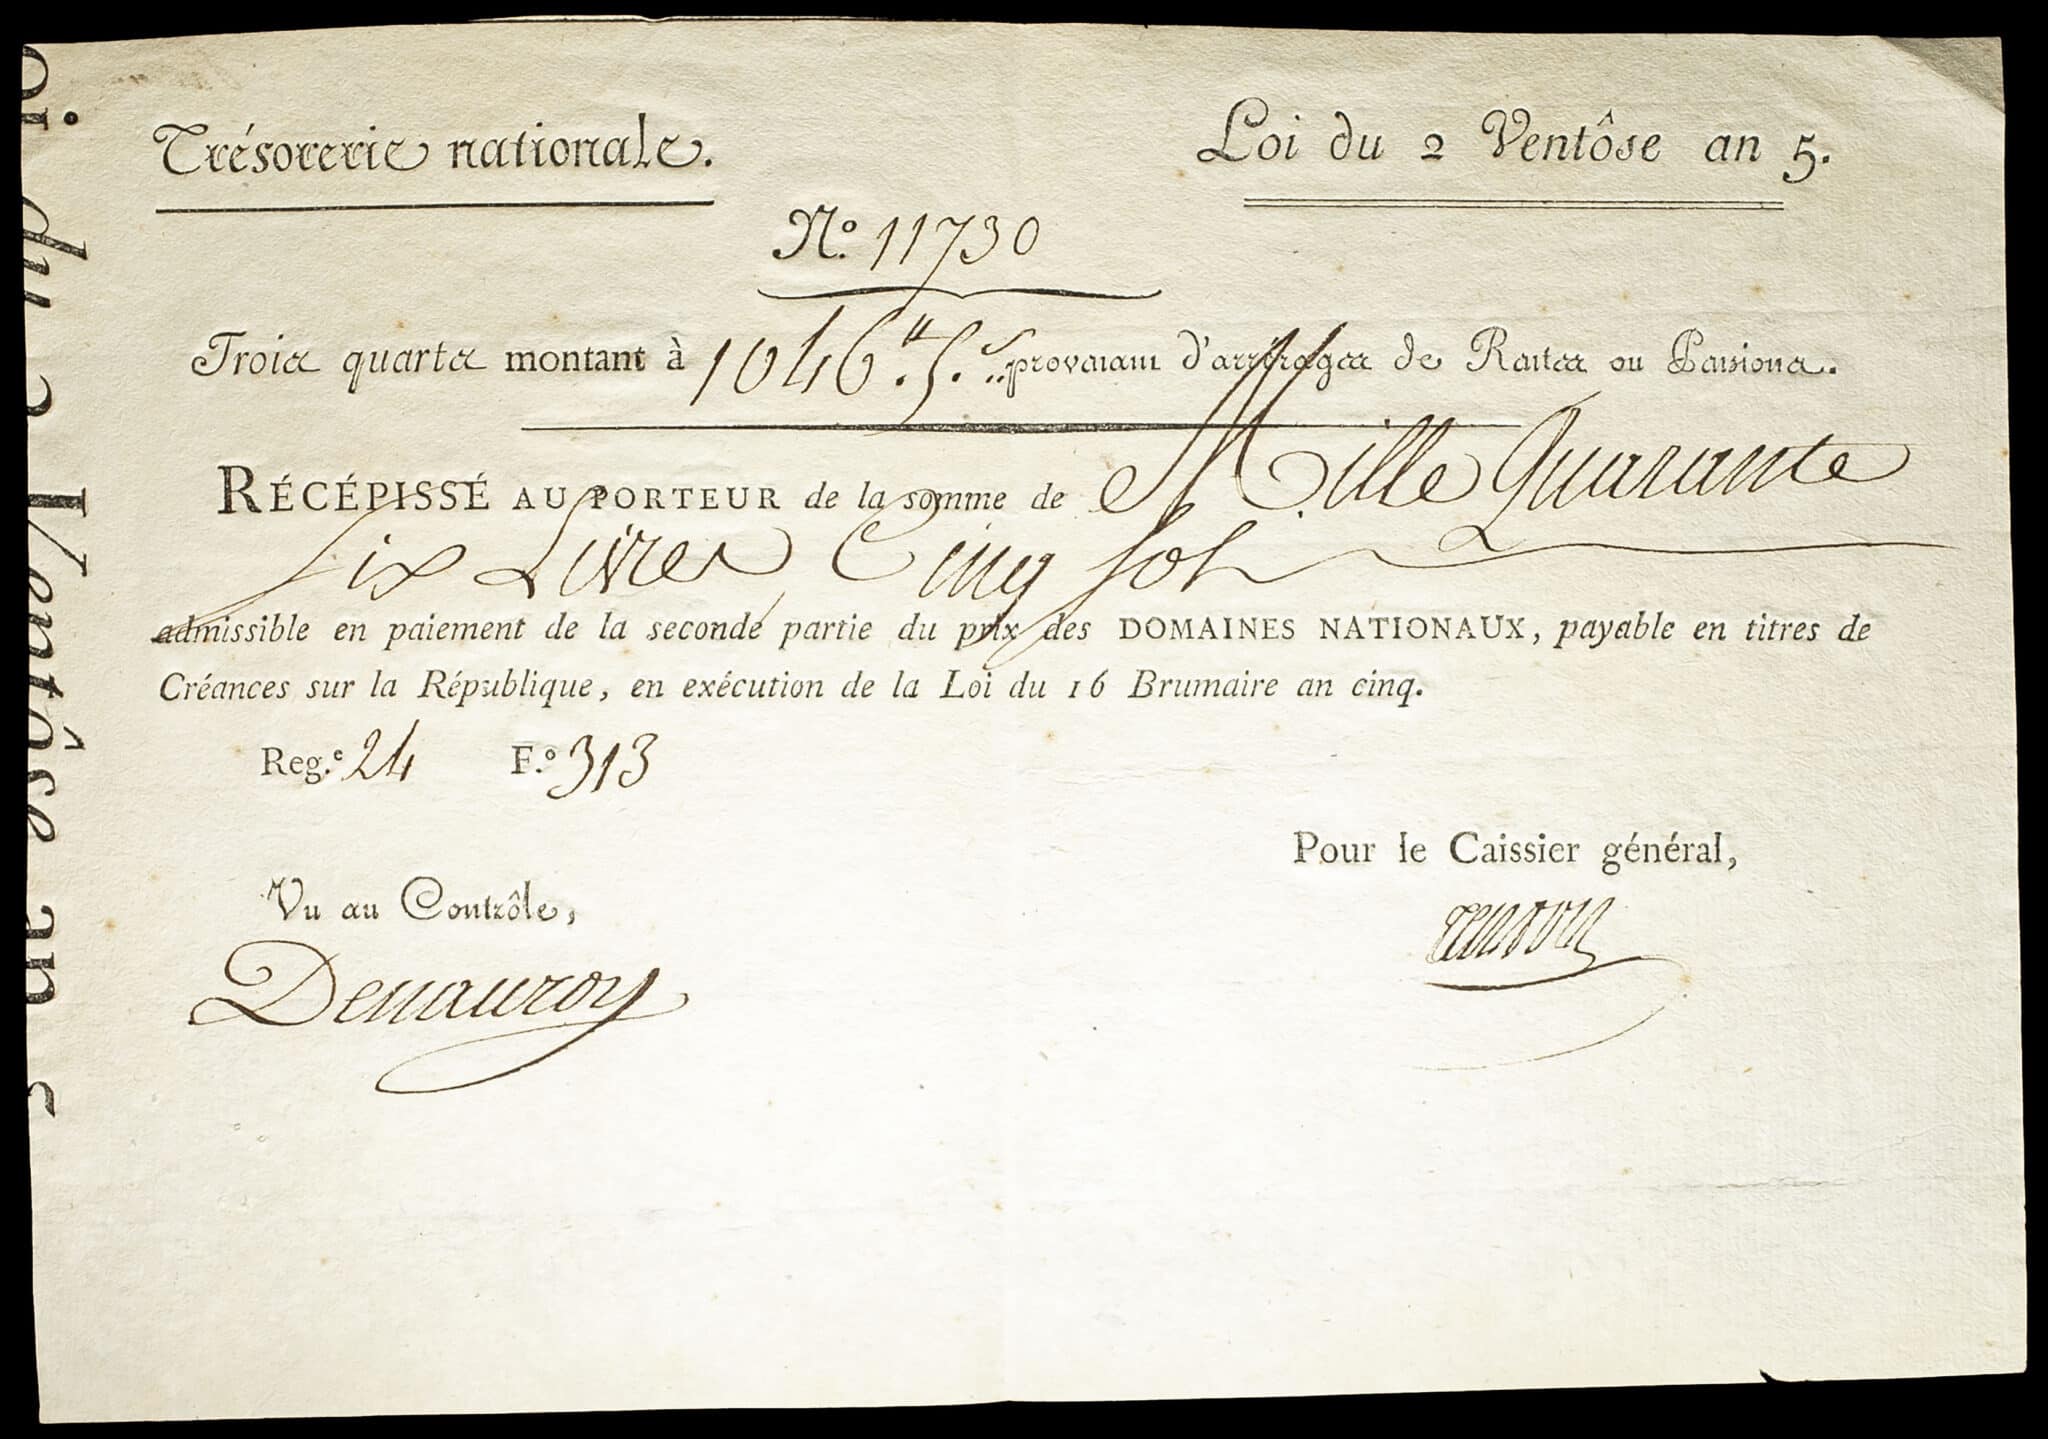 Trésorerie nationale.
Loi du 2 Ventôse an 5.
N.º 11730
Trois quarts montant à 1046ᵗᵗ.5.ˢ provenant d'arrérages de Rentes ou Pensions.
RÉCÉPISSÉ AU PORTEUR de la somme de Mille Quarante
Six Livres, Cinq Sols
admissible en paiement de la seconde partie du prix des DOMAINES NATIONAUX, payable en titres de
Créances sur la République, en exécution de la Loi du 16 Brumaire an cinq.
Reg.ᵉ 24 F.º 313
Pour le Caissier général,
Vu au Contrôle,
Denauroy
oi du 2 Ventôse an 5